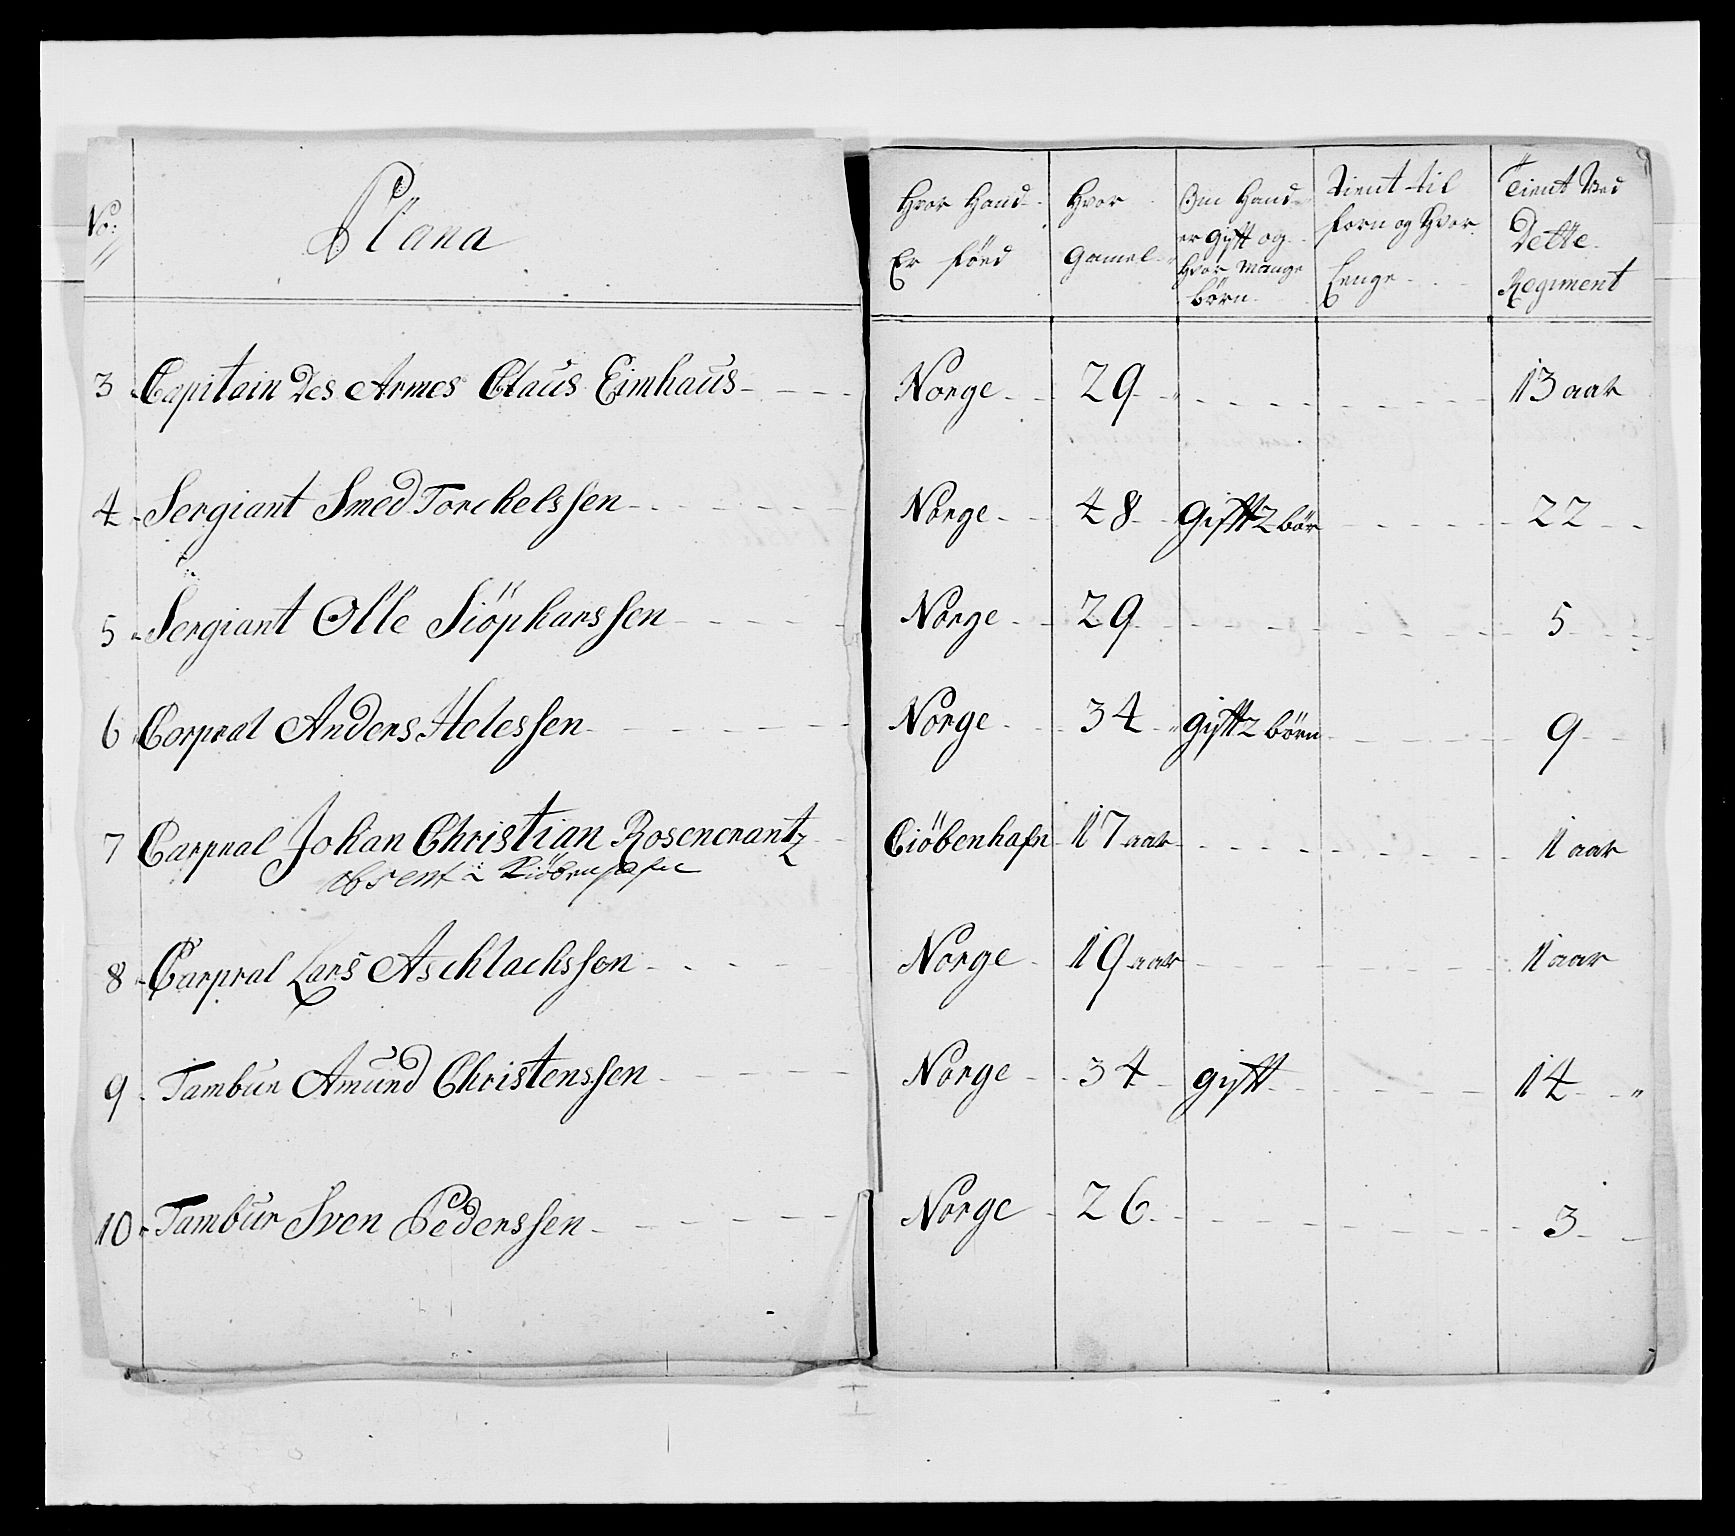 No: Plana Hvor Hand Er föed Hvor Gamel Om Hand er gifft og hvor mange börn Tient til forn og Hvor Lenge Tient Ved Dette Regiment
3 Capitain Des Armes Claus Eimhaus Norge 29 13 aar
4 Sergiant Smed Torchelssen Norge 48 Gifft 2 bör 22
5 Sergiant Olle Siöpharssen Norge 29 5
6 Corpral Anders Helessen Norge 34 gifft 2 börn 9
7 Carpral Johan Christian Rosencrantz Ciöbenhafn 17 aar 1 aar
absent i Kiöbenhafn
8 Carpral Lars Aschlachssen Norge 19 aar 1 aar
9 Tambur Amund Christenssen Norge 34 gifft 14
10 Tambur Sven Pederssen Norge 26 3